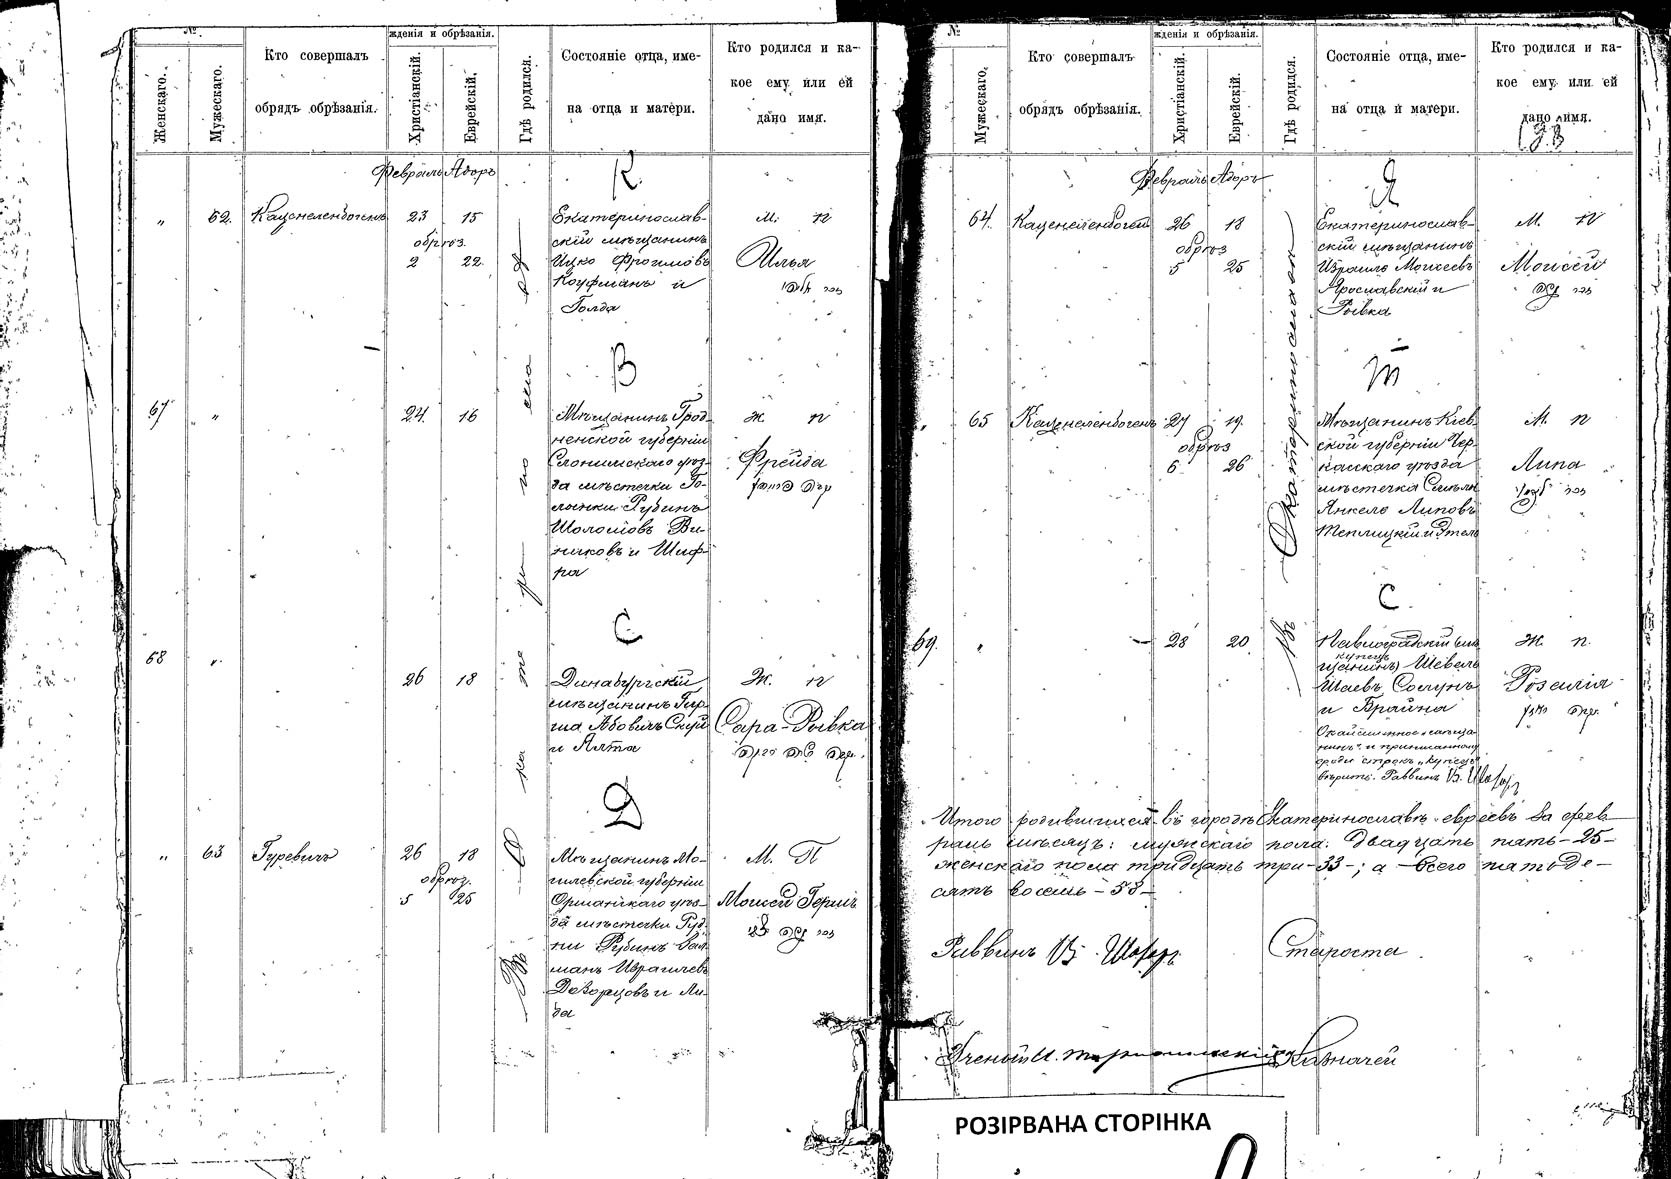 №
ждения и обрѣзанія.
Женскаго.
Мужескаго.
Кто совершалъ
обрядъ обрѣзанія.
Христіанскій.
Еврейскій.
Гдѣ родился.
Состояніе отца, име-
на отца и матери.
Кто родился и ка-
кое ему или ей
дано имя.
Февраль Адаръ
К.
„ 62. Каценеленбогенъ 23 15
обрѣз.
2 22.
Екатеринослав-
скій мѣщанинъ
Ицко Фроимовъ
Кауфманъ и
Голда
М. п
Илья
В
67 „ 24. 16
Мѣщанинъ Грод-
ненской губерніи
Слонимскаго уѣз-
да мѣстечки По-
лонки Рубинъ
Шоломовъ Ви-
никовъ и Шиф-
ра
Ж п
Фрейда
С
68 „ 26 18
Динабургскій
мѣщанинъ Гир-
ша Абовичъ
и Ялта
Ж. п
Сара-Рывка
Д
„ 63 Гуревичъ 26 18
обрѣз.
5 25
Мѣщанинъ Мо-
гилевской губерніи
Оршанскаго уѣз-
да мѣстечки Руд-
ни Рубинъ Зал-
манъ Израилевъ
Дворцовъ и Ли-
да
М. П
Моисей Гершъ
№
ждения и обрѣзанія.
Мужескаго.
Кто совершалъ
обрядъ обрѣзанія.
Христіанскій.
Еврейскій.
Гдѣ родился.
Состояніе отца, име-
на отца и матери.
Кто родился и ка-
кое ему или ей
дано имя.
Февраль Адаръ
Я
64. Каценеленбогенъ 26 18
обрѣз
5 25
Екатеринослав-
скій мѣщанинъ
Израиль Моисеевъ
Ярославскій и
Рывка
М. п
Моисей
въ Екатеринославѣ
Т
65 Каценеленбогенъ 27 19.
обрѣз
6 26
Мѣщанинъ Кіев-
ской губерніи Чер-
касскаго уѣзда
мѣстечка Смѣлы
Янкель Липовъ
Теплицкій и Этель
М. п
Липа
С
69. „ — 28 20
Павлоградскій мѣ-
купецъ
щанинъ Шевель
Шаевъ
и Брайна
Ж. п.
Розалія
вѣрить. Раввинъ В. Шахоръ
Итого родившихся въ городѣ Екатеринославѣ евреевъ за фев
раль мѣсяцъ: мужскаго пола: двадцать пять-25-
женскаго пола тридцать три-33-; а всего пятьде-
сятъ восемь-58-
Раввинъ В. Шахоръ Староста
Ученый Казначей
РОЗІРВАНА СТОРІНКА